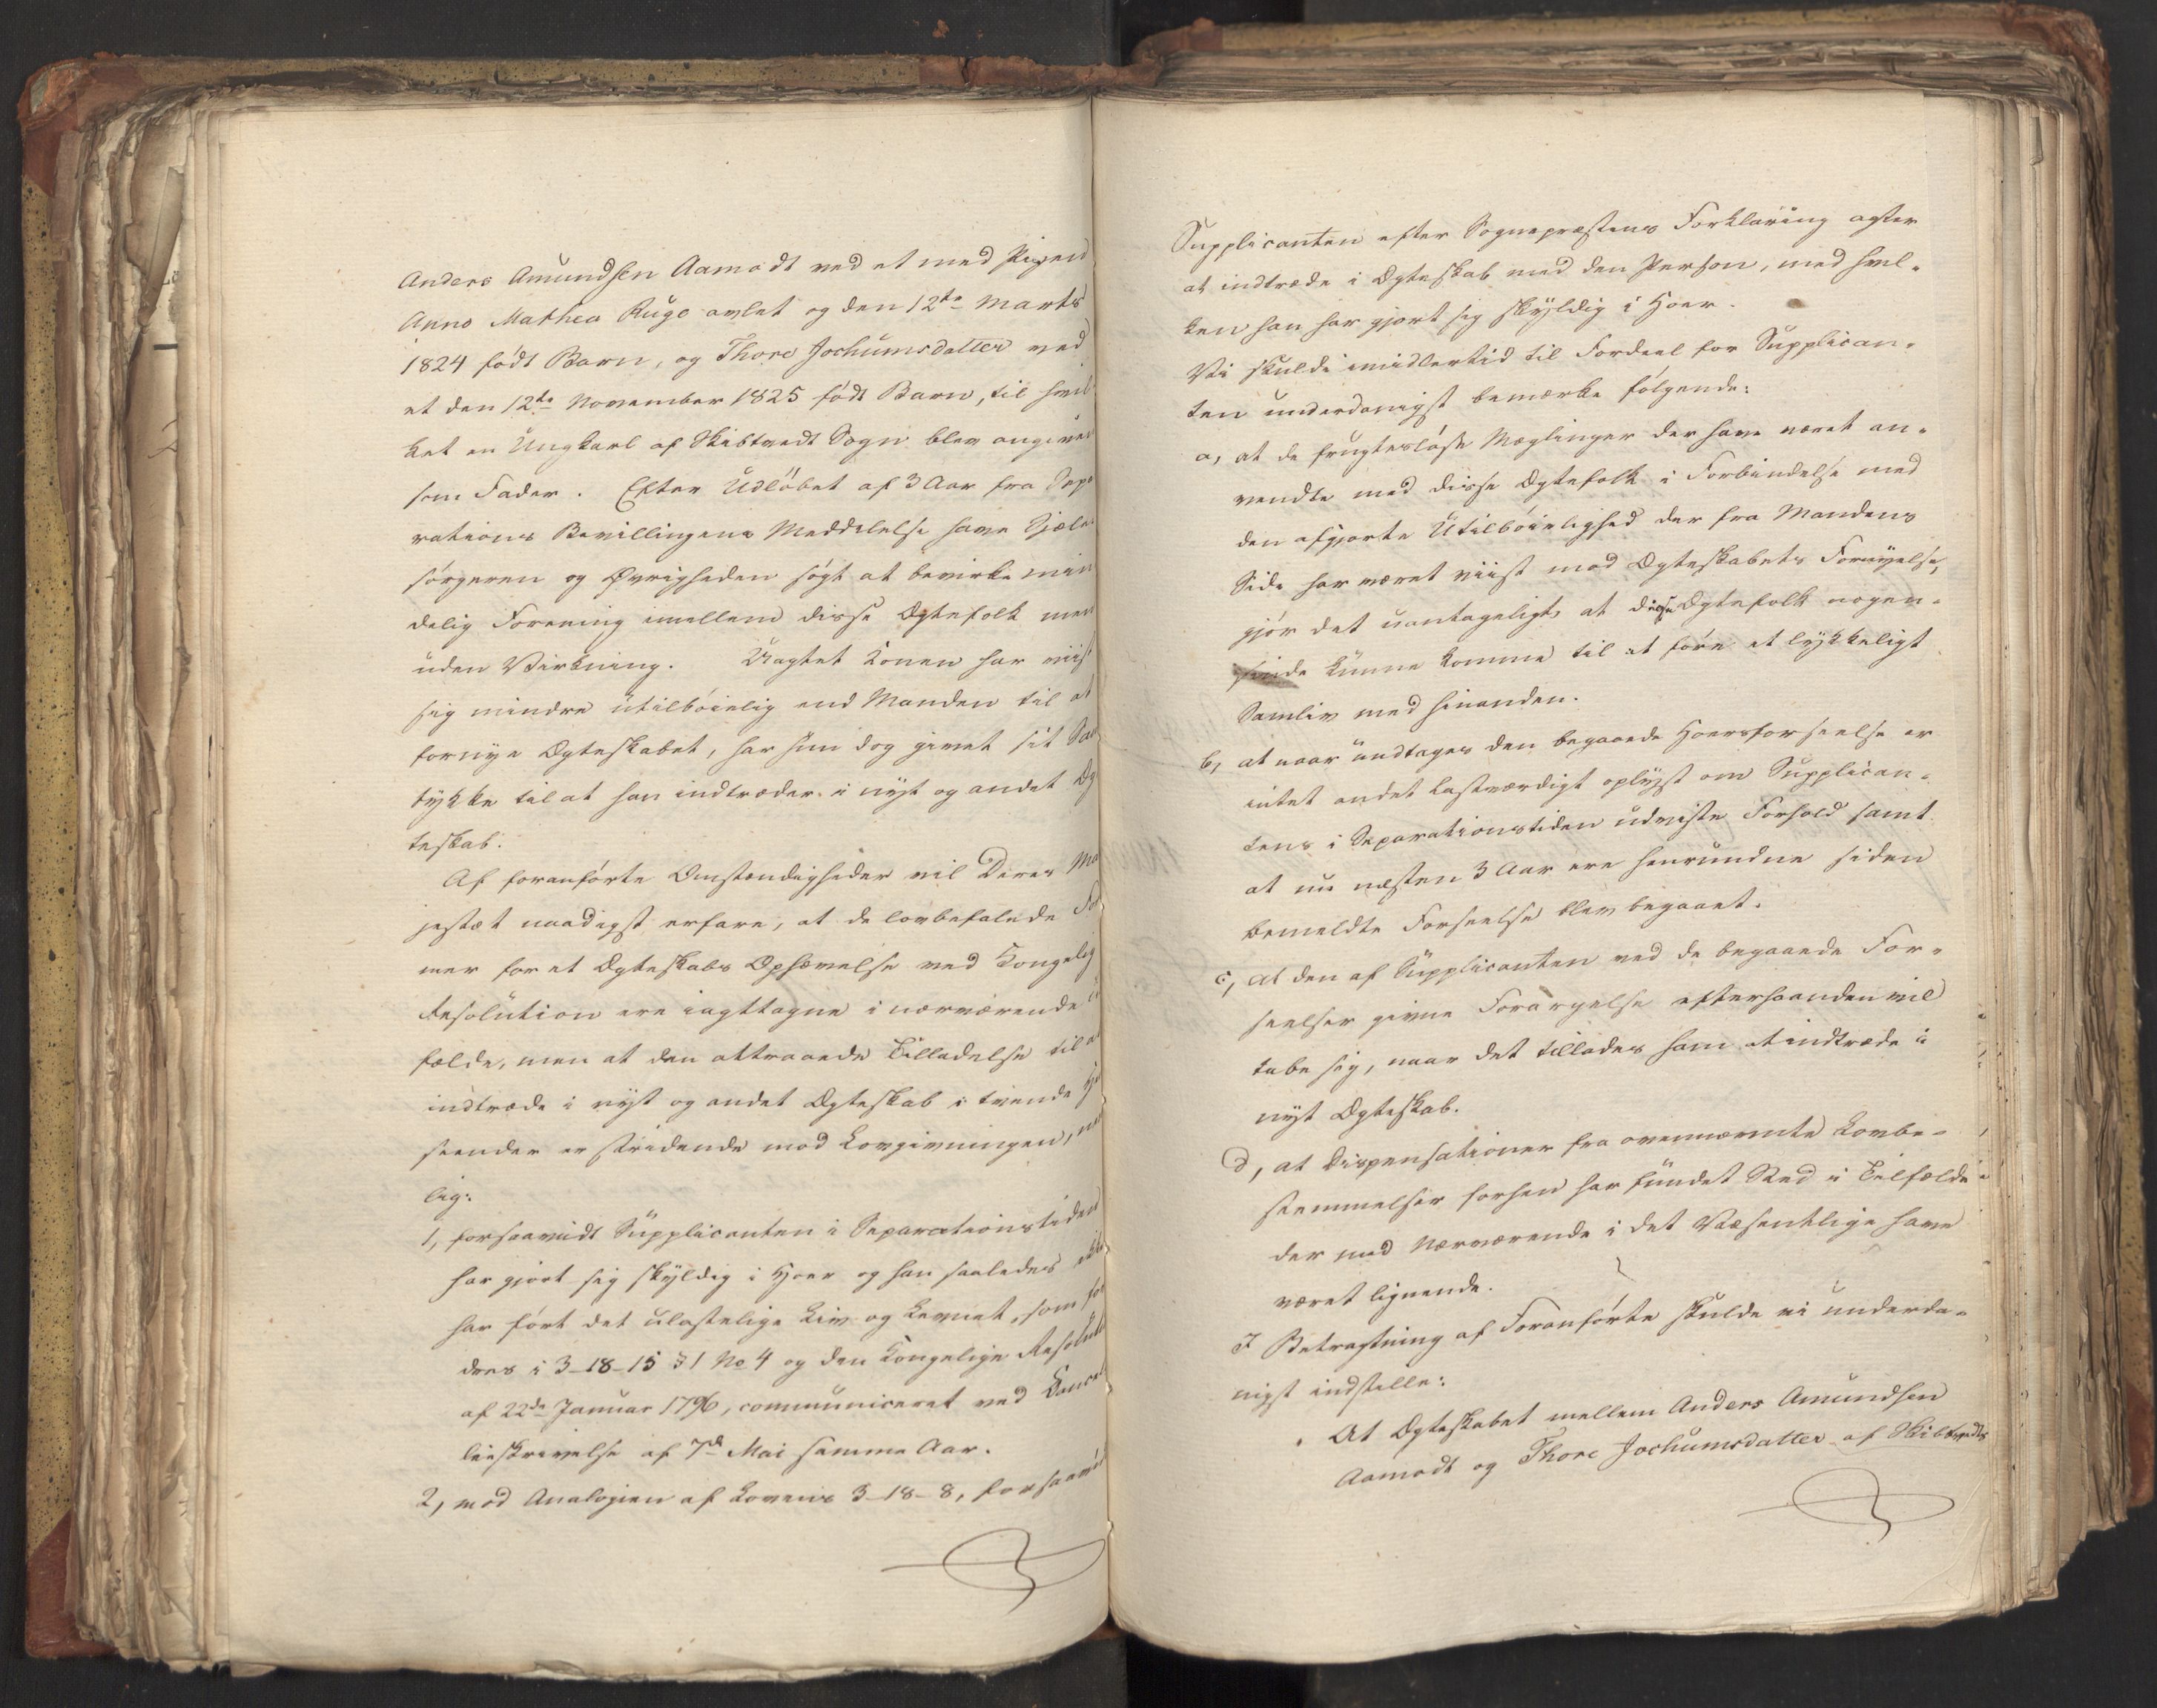 Anders Amundsen Aamodt ved et med Pigen
Anne Mathea Ruge avlet og den 12te Marts
1824 født Barn, og Thore Jochumsdatter ved
et den 12te November 1825 født Barn, til hvil
ket en Ungkarl af Skibtvedt Sogn blev angiven
som Fader. Efter Udløbet af 3 Aar fra Sepa
rations Bevillingens Meddelelse have Sjæle
sørgeren og Øvrigheden søgt at bevirke min
delig Forening imellem disse Ægtefolk men
uden Virkning. Uagtet Konen har viist
sig mindre utilbøielig end Manden til at
fornye Ægteskabet, har hun dog givet sit Sam
tykke til at han indtræder i nyt og andet Æg
teskab.
Af foranførte Omstændigheder vil Deres Ma
jestæt naadigst erfare, at de lovbefalede For
mer for et Ægteskabs Ophævelse ved Kongelig
Resolution ere iagttagne i nærværende
fælde, men at den attraaede Tilladelse til at
indtræde i nyt og andet Ægteskab i tvende
seender er stridende mod Lovgivningen, nem
lig:
1, forsaavidt Supplicanten i Separationstiden
har gjort sig skyldig i Hoer og han saaledes ikke
har ført det ulastelige Liv og Levnet, som for
dres i 3-18-15 § 1 No 4 og den Kongelige Resoluti
af 22de Januar 1796, communiceret ved Cancel
lieskrivelse af 7de Mai samme Aar.
2, mod Analogien af Lovens 3-18-8, forsaavidt
Supplicanten efter Sognepræstens Forklaring agter
at indtræde i Ægteskab med den Person, med hvil-
ken han har gjort sig skyldig i Hoer.
Vi skulde imidlertid til Fordeel for Supplican-
ten underdanigst bemærke følgende:
a, at de frugtesløse Mæglinger der have været an-
vendte med disse Ægtefolk i Forbindelse med
den afgjorte Utilbøielighed der fra Mandens
Side har været viist mod Ægteskabets Fornyelse,
gjør det uantageligt, at disse Ægtefolk nogen-
sinde kunne komme til at føre et lykkeligt
Samliv med hinanden.
b, at naar undtages den begaaede Hoersforseelse er
intet andet lastværdigt oplyst om Supplican-
tens i Separationstiden udviste Forhold samt
at nu næsten 3 Aar ere henrundne siden
bemeldte Forseelse blev begaaet.
c, at den af Supplicanten ved de begaaede For-
seelser givne Forargelse efterhaanden vil
tabe sig, naar det tillades ham at indtræde i
nyt Ægteskab.
d, at Dispensationer fra ovennævnte Lovbe-
stemmelser forhen har fundet Sted i Tilfælde
der med Nærværende i det Væsentlige have
været lignende.
I Betragtning af Foranførte skulde vi underda-
nigst indstille:
At Ægteskabet mellem Anders Amundsen
Aamodt og Thore Jochumsdatter af Skibtvedts